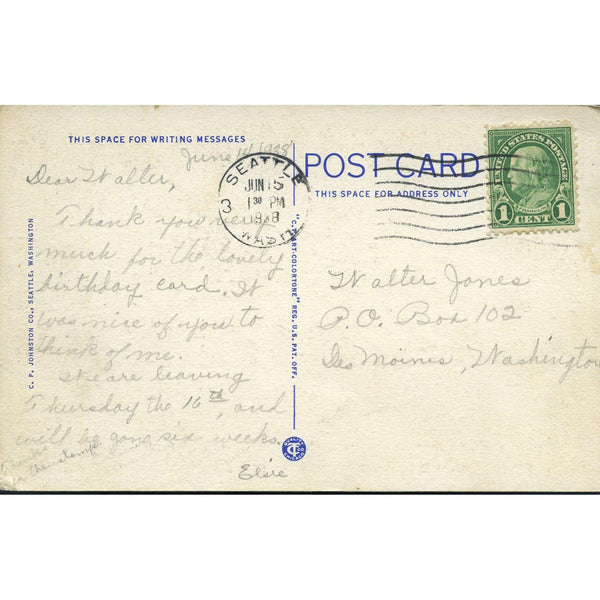 THIS SPACE FOR WRITING MESSAGES
June 14, 1938
Dear Walter,
Thank you very
much for the lovely
birthday card. It
was nice of you to
think of me.
We are leaving
Thursday the 16th, and
will be gone six weeks.
Elsie
Thanks
for the stamps.
C. P. JOHNSTON CO., SEATTLE, WASHINGTON
"C.T. ART-COLORTONE" REG. U.S. PAT. OFF.
SEATTLE
3
JUN 15
1 30 PM
1938
WASH.
POST CARD
THIS SPACE FOR ADDRESS ONLY
UNITED STATES POSTAGE
1 CENT 1
Walter Jones
P.O. Box 102
Des Moines, Washington